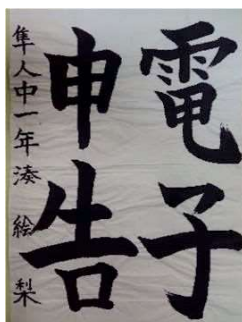 電子
申告
隼人中一年湊絵梨